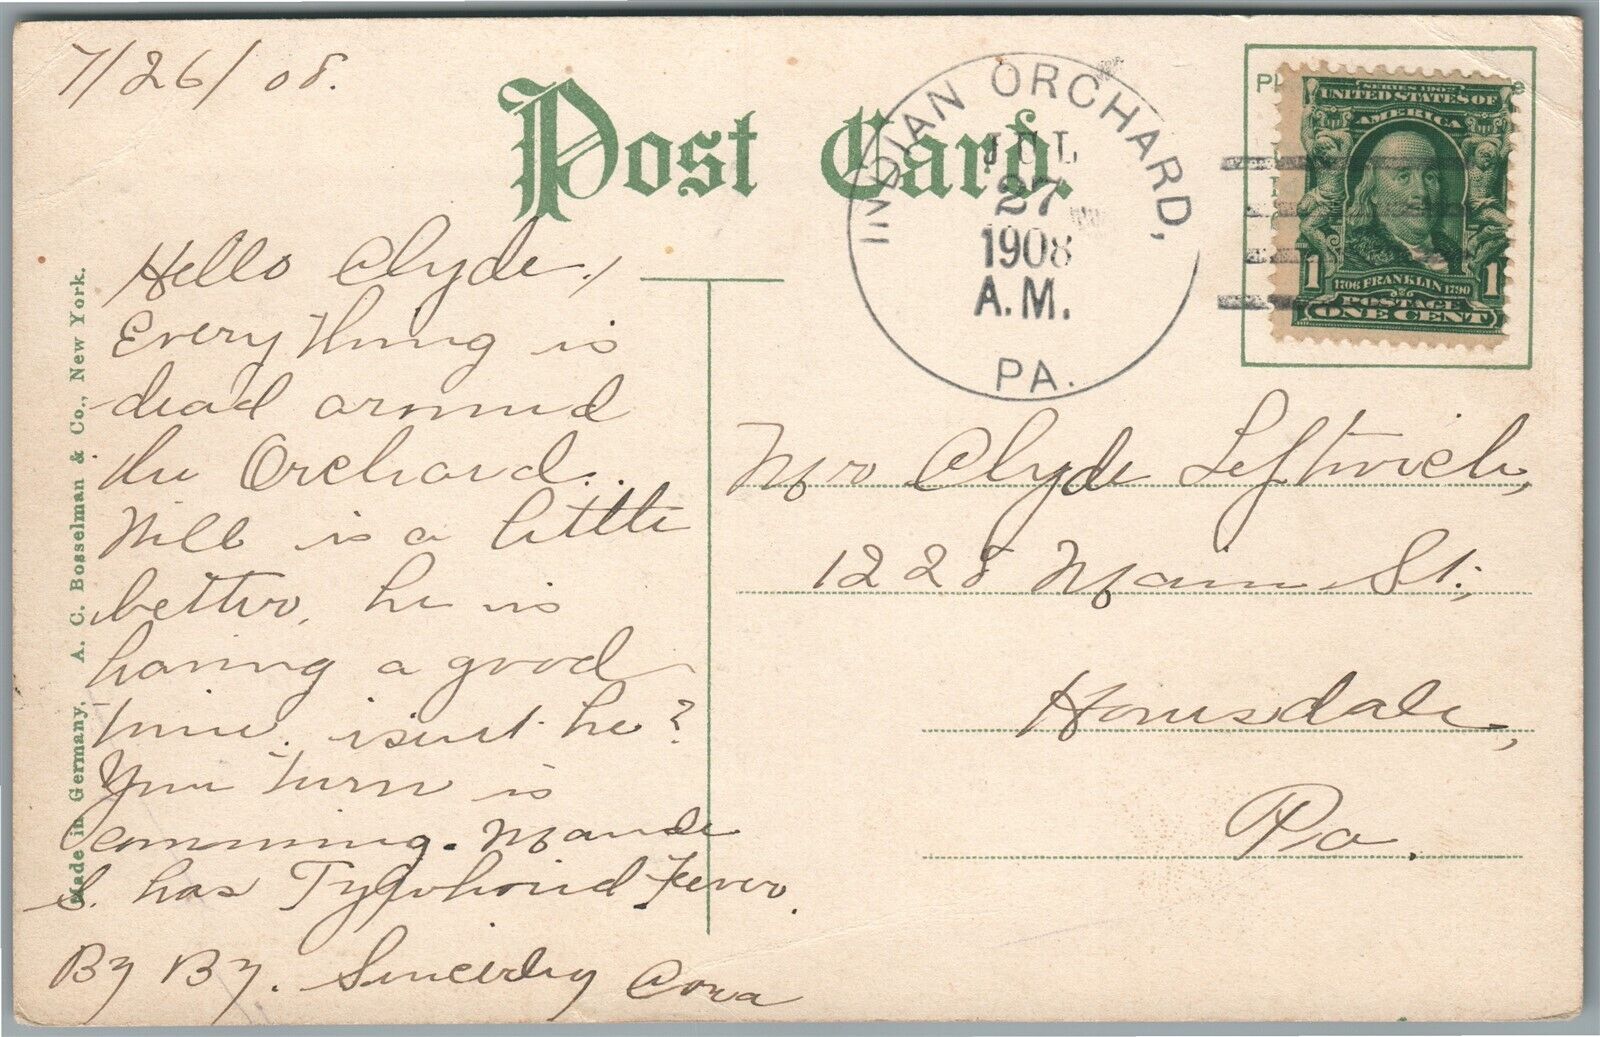 7/26/08.
Post Card.
INDIAN ORCHARD,
JUL
27
1908
A.M.
PA.
SERIES 1902
UNITED STATES OF
AMERICA
1706 FRANKLIN 1790
1 1
POSTAGE
ONE CENT
Hello Clyde.,
Every thing is
dead around
the Orchard..
Will is a little
better, he is
having a good
time. isent he?
Your turn is
comming. Maude
S. has Typhoid Fever.
By By. Sincerly Cora
Mr Clyde Leftwich,
1228 Main St.,
Honesdale,
Pa.
Made in Germany, A. C. Bosselman & Co., New York.